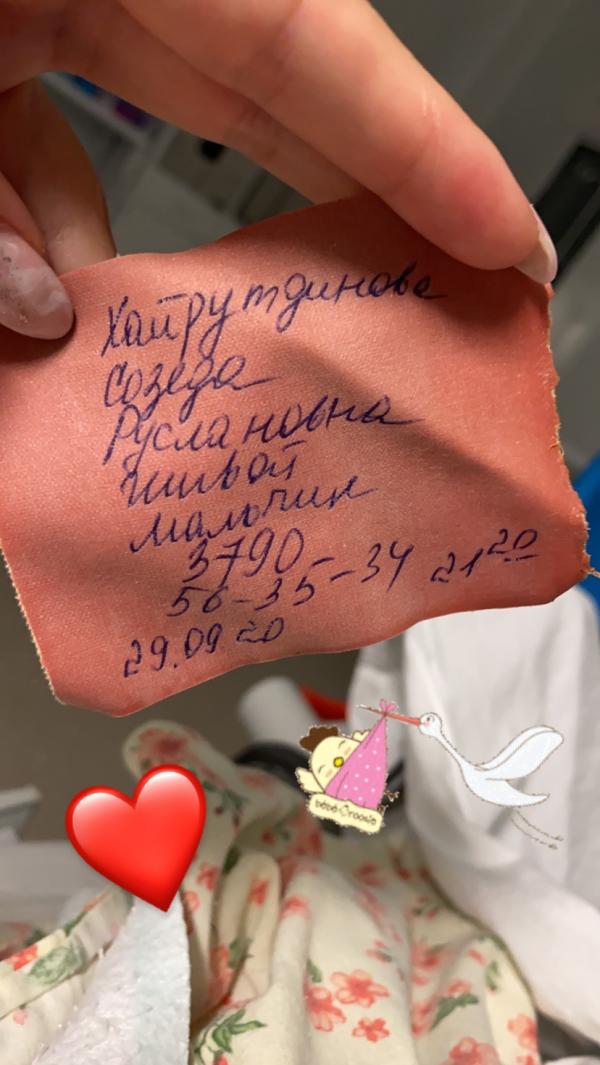 Хайрутдинова
Созеда
Руслановна
живой
мальчик
3790-
56-35-34 21 20
29.09 20